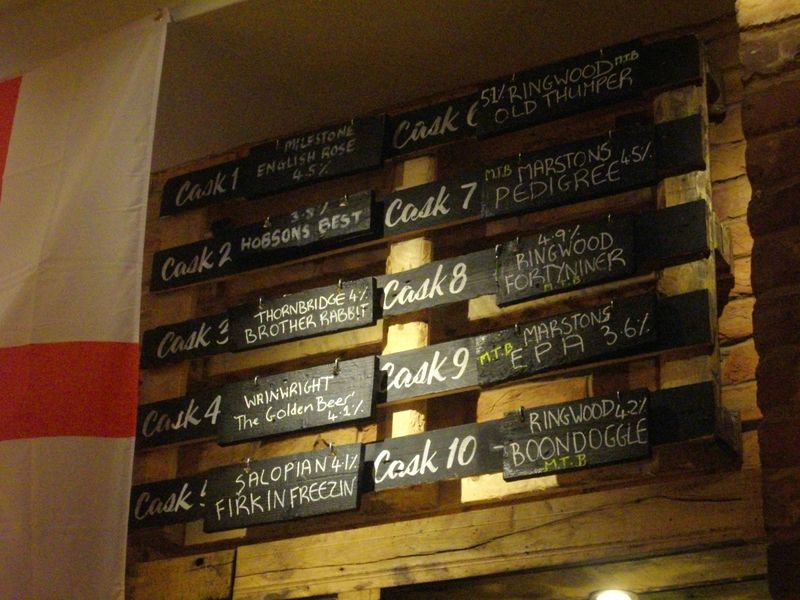 Cask 1
MILESTONE
ENGLISH ROSE
4.5%
Cask 2
3.8%
HOBSONS BEST
Cask 3
THORNBRIDGE 4%
BROTHER RABBIT
Cask 4
WAINWRIGHT
The Golden Beer
4.1%
Cask
SALOPIAN 4.1%
FIRKIN FREEZIN
Cask 6
5.1% RINGWOOD M.T.B
OLD THUMPER
Cask 7
M.T.B MARSTONS 4.5%
PEDIGREE
Cask 8
4.9%
RINGWOOD
FORTYNINER
M.T.B
Cask 9
M.T.B MARSTONS
EPA 3.6%
Cask 10
RINGWOOD 4.2%
BOONDOGGLE
M.T.B